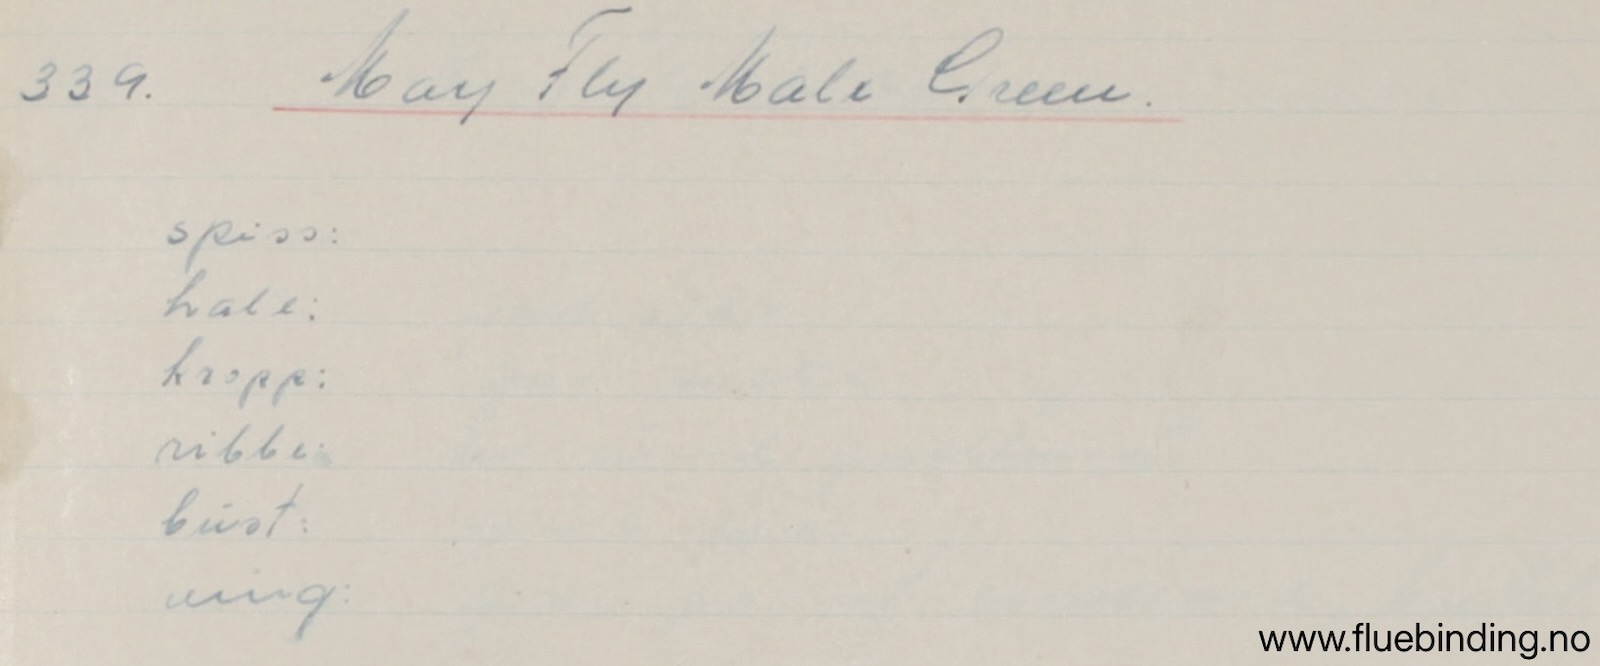 339. May Fly Male Green.
spiss:
hale:
kropp:
ribbe:
bust:
ving:
www.fluebinding.no